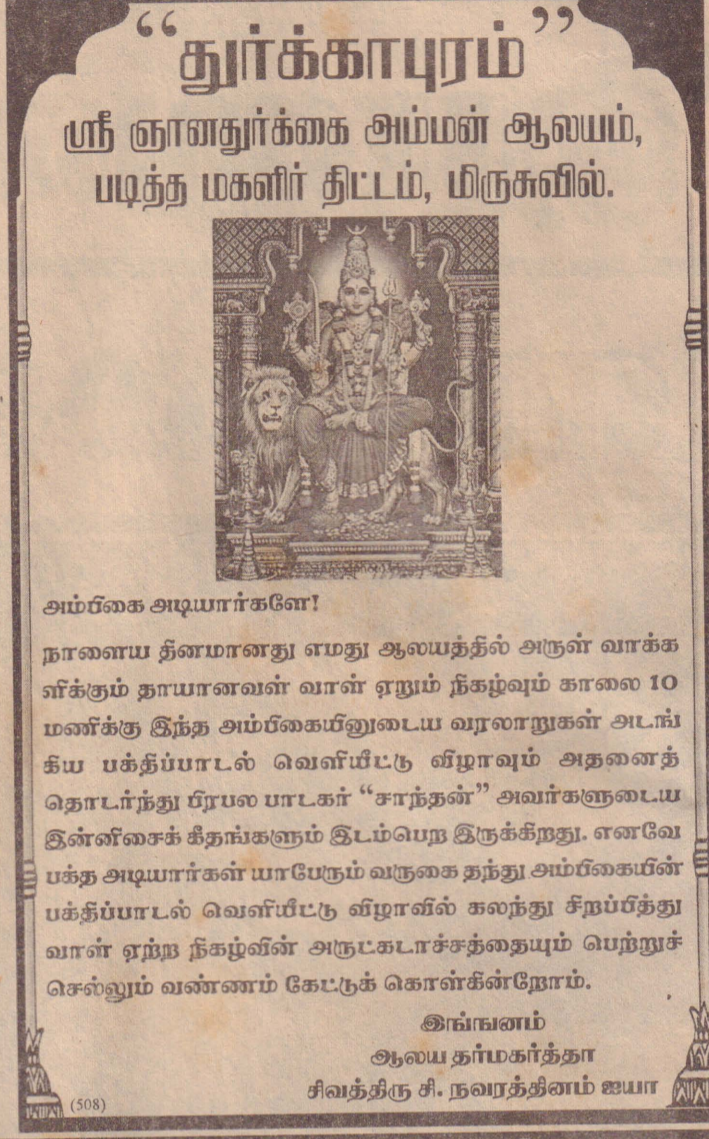 “துர்க்காபுரம்”
ஸ்ரீ ஞானதுர்க்கை அம்மன் ஆலயம்,
படித்த மகளிர் திட்டம், மிருசுவில்.
அம்பிகை அடியார்களே!
நாளைய தினமானது எமது ஆலயத்தில் அருள் வாக்க
ளிக்கும் தாயானவள் வாள் ஏறும் நிகழ்வும் காலை 10
மணிக்கு இந்த அம்பிகையினுடைய வரலாறுகள் அடங்
கிய பக்திப்பாடல் வெளியீட்டு விழாவும் அதனைத்
தொடர்ந்து பிரபல பாடகர் “சாந்தன்” அவர்களுடைய
இன்னிசைக் கீதங்களும் இடம்பெற இருக்கிறது. எனவே
பக்த அடியார்கள் யாபேரும் வருகை தந்து அம்பிகையின்
பக்திப்பாடல் வெளியீட்டு விழாவில் கலந்து சிறப்பித்து
வாள் ஏற்ற நிகழ்வின் அருட்கடாச்சத்தையும் பெற்றுச்
செல்லும் வண்ணம் கேட்டுக் கொள்கின்றோம்.
இங்ஙனம்
ஆலய தர்மகர்த்தா
சிவத்திரு சி. நவரத்தினம் ஐயா
(508)